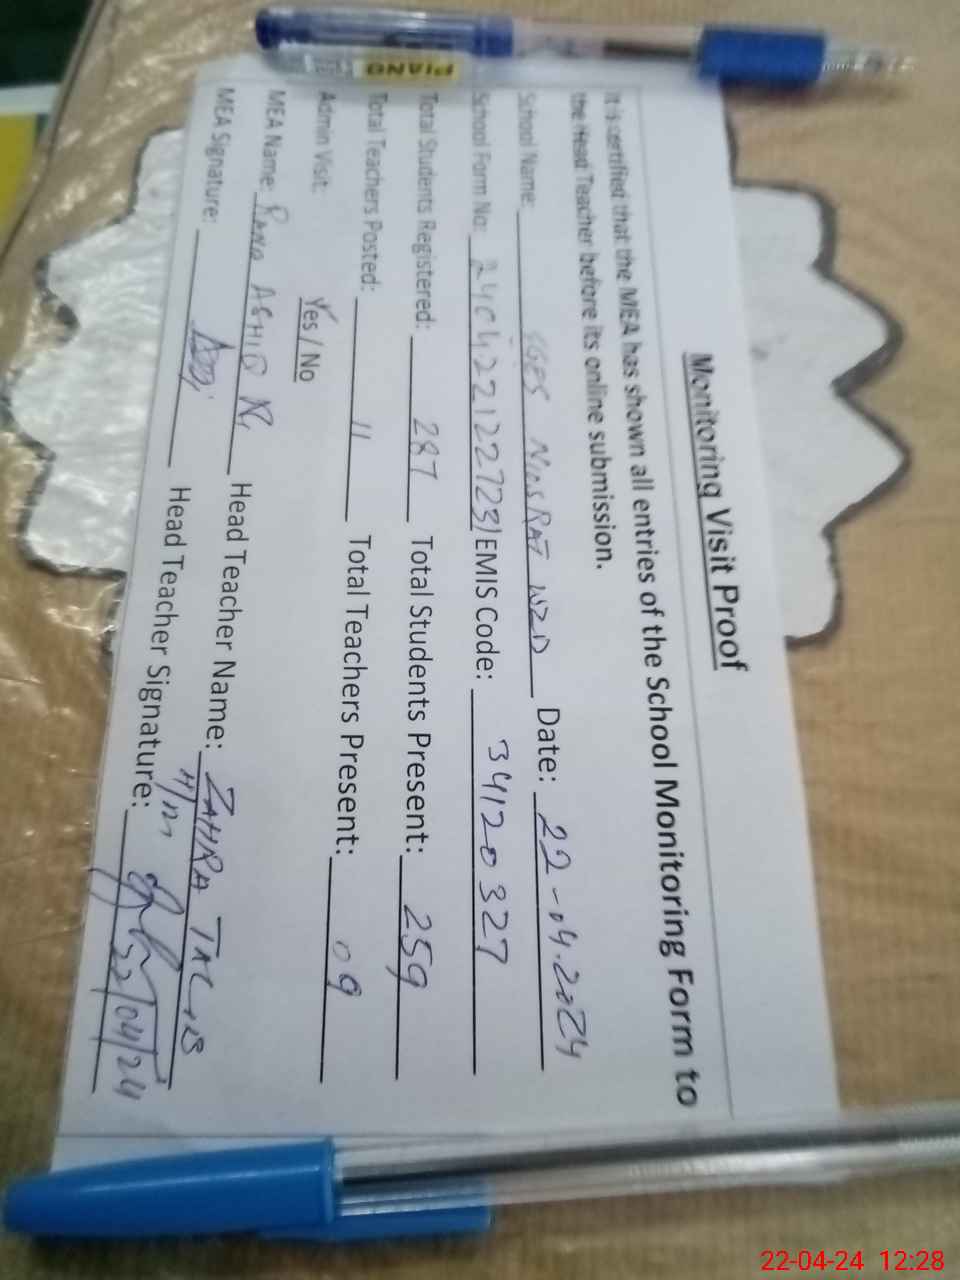 Monitoring Visit Proof
It is certified that the MEA has shown all entries of the School Monitoring Form to
the Head Teacher before its online submission.
School Name: GGES NUSRAT WZD Date: 22-04-2024
School Form No: EMIS Code: 34120327
Total Students Registered: 287 Total Students Present: 259
Total Teachers Posted: 11 Total Teachers Present: 09
Admin Visit: Yes / No
MEA Name: RANA ASHIQ Head Teacher Name: ZAHRA
MEA Signature: Head Teacher Signature: 22/04/24
PIANO
22-04-24 12:28